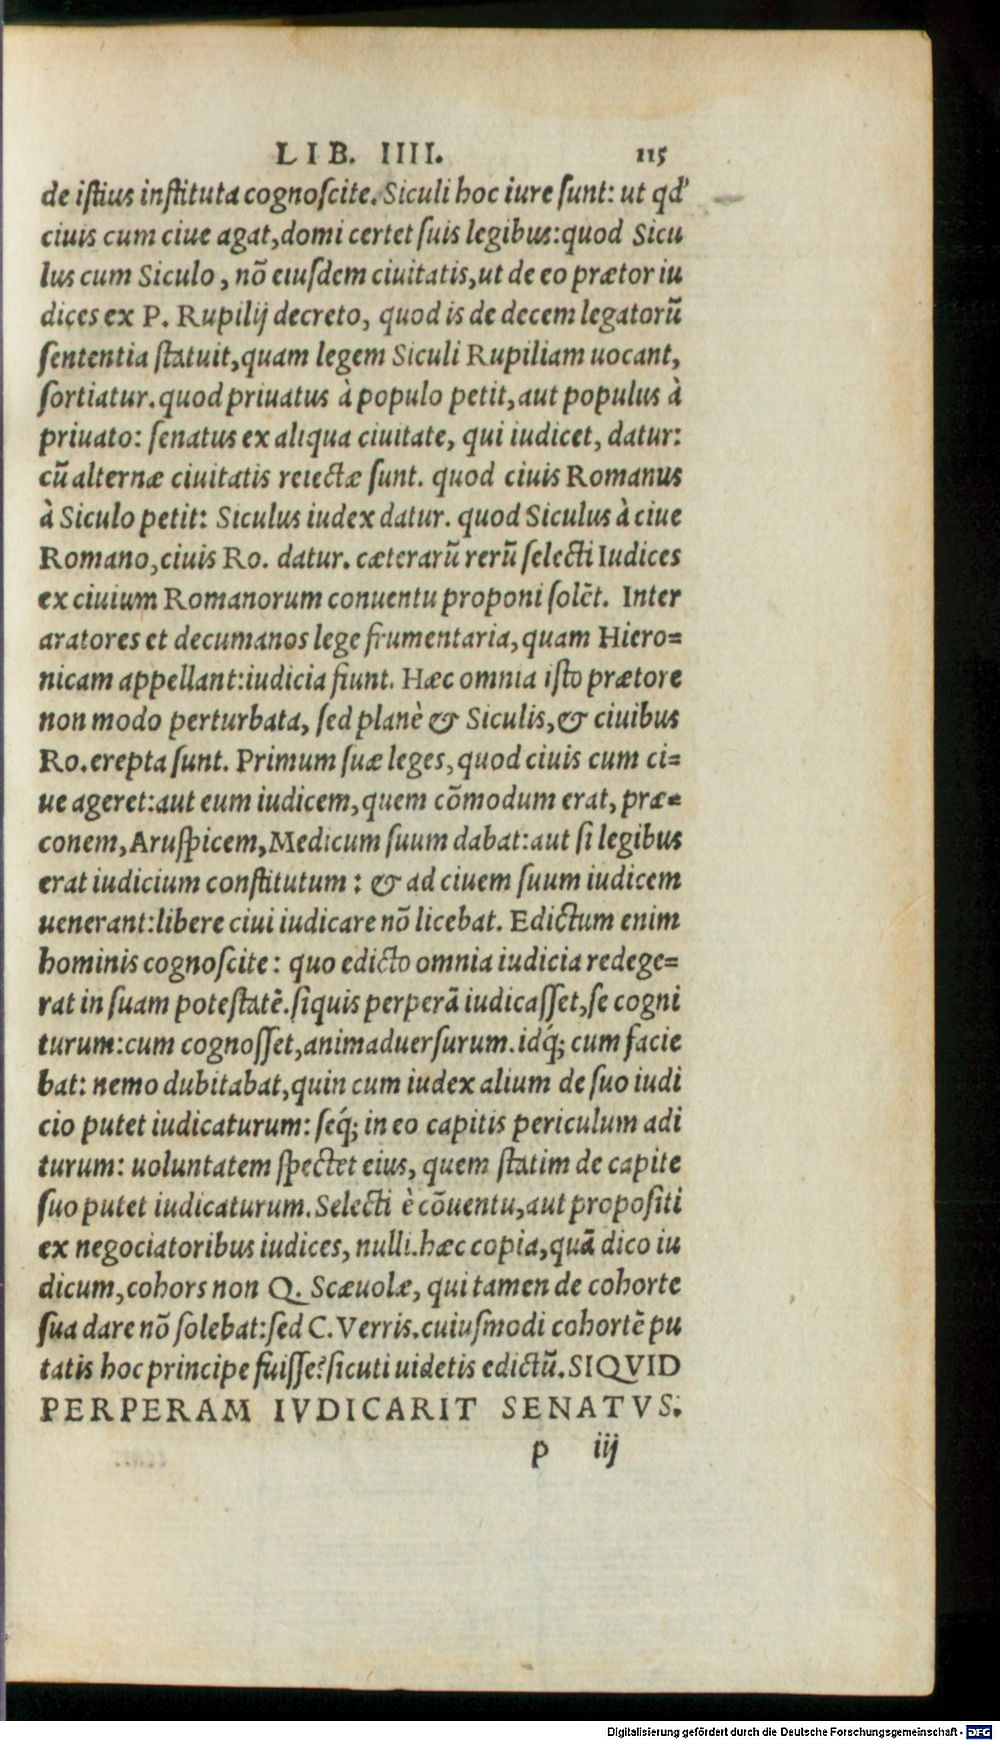 LIB. IIII. 115
de istius instituta cognoscite. Siculi hoc iure sunt: ut qd'
ciuis cum ciue agat, domi certet suis legibus: quod Sicu
lus cum Siculo, nõ eiusdem ciuitatis, ut de eo prætor iu
dices ex P. Rupilij decreto, quod is de decem legatorũ
sententia statuit, quam legem Siculi Rupiliam uocant,
sortiatur. quod priuatus à populo petit, aut populus à
priuato: senatus ex aliqua ciuitate, qui iudicet, datur:
cũ alternæ ciuitatis reiectæ sunt. quod ciuis Romanus
à Siculo petit: Siculus iudex datur. quod Siculus à ciue
Romano, ciuis Ro. datur. cæterarũ rerũ selecti Iudices
ex ciuium Romanorum conuentu proponi solẽt. Inter
aratores et decumanos lege frumentaria, quam Hiero=
nicam appellant: iudicia fiunt. Hæc omnia isto prætore
non modo perturbata, sed planè & Siculis, & ciuibus
Ro. erepta sunt. Primum suæ leges, quod ciuis cum ci=
ue ageret: aut eum iudicem, quem cõmodum erat, præ=
conem, Aruspicem, Medicum suum dabat: aut si legibus
erat iudicium constitutum: & ad ciuem suum iudicem
uenerant: libere ciui iudicare nõ licebat. Edictum enim
hominis cognoscite: quo edicto omnia iudicia redege=
rat in suam potestatẽ. siquis perperã iudicasset, se cogni
turum: cum cognosset, animaduersurum. idq́; cum facie
bat: nemo dubitabat, quin cum iudex alium de suo iudi
cio putet iudicaturum: seq́; in eo capitis periculum adi
turum: uoluntatem spectet eius, quem statim de capite
suo putet iudicaturum. Selecti è cõuentu, aut propositi
ex negociatoribus iudices, nulli. hæc copia, quã dico iu
dicum, cohors non Q. Scæuolæ, qui tamen de cohorte
sua dare nõ solebat: sed C. Verris. cuiusmodi cohortẽ pu
tatis hoc principe fuisse? sicuti uidetis edictũ. SIQVID
PERPERAM IVDICARIT SENATVS.
p iij
Digitalisierung gefördert durch die Deutsche Forschungsgemeinschaft - DFG